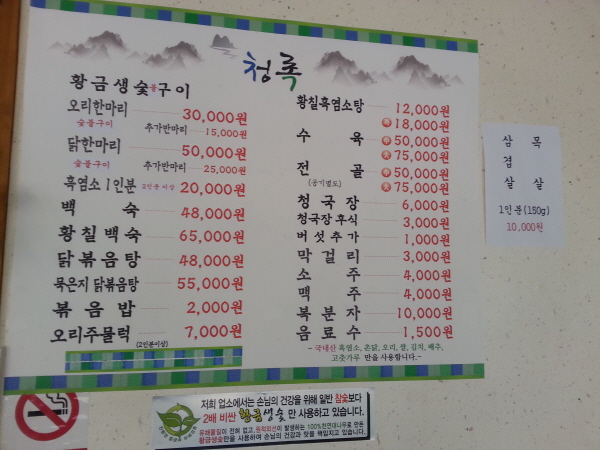 청록
황금생숯불구이
오리한마리 30,000원
숯불구이 추가반마리 15,000원
닭한마리 50,000원
숯불구이 추가반마리 25,000원
흑염소1인분 2인분이상 20,000원
백숙 48,000원
황칠백숙 65,000원
닭볶음탕 48,000원
묵은지 닭볶음탕 55,000원
볶음밥 2,000원
오리주물럭 7,000원
(2인분이상)
황칠흑염소탕 12,000원
특 18,000원
수육 중 50,000원
대 75,000원
전골 중 50,000원
(공기별도) 대 75,000원
청국장 6,000원
청국장후식 3,000원
버섯추가 1,000원
막걸리 3,000원
소주 4,000원
맥주 4,000원
복분자 10,000원
음료수 1,500원
- 국내산 흑염소, 촌닭, 오리, 쌀, 김치, 배추,
고춧가루 만을 사용합니다.-
삼 목
겹
살 살
1인분(150g)
10,000원
저희 업소에서는 손님의 건강을 위해 일반 참숯보다
2배 비싼 황금생숯만 사용하고 있습니다.
유해물질이 전혀 없고, 원적외선이 발생하는 100%천연대나무로 만든
황금생숯만을 사용하여 손님의 건강과 맛을 책임지고 있습니다.